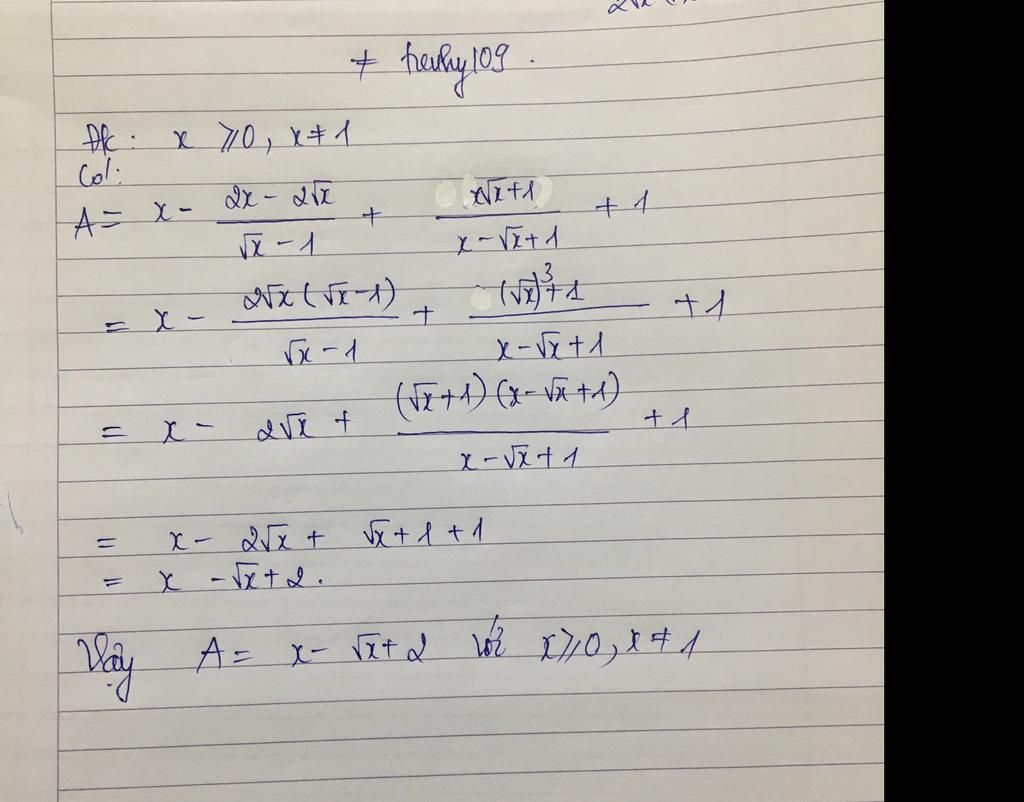 ≠ hevhy109.
Đk: x ≥ 0, x ≠ 1
Có:
A = x - \frac{2x - 2√x}{√x - 1} + \frac{x√x + 1}{x - √x + 1} + 1
= x - \frac{2√x(√x - 1)}{√x - 1} + \frac{(√x)^3 + 1}{x - √x + 1} + 1
= x - 2√x + \frac{(√x + 1)(x - √x + 1)}{x - √x + 1} + 1
= x - 2√x + √x + 1 + 1
= x - √x + 2.
Vậy A = x - √x + 2 với x ≥ 0, x ≠ 1